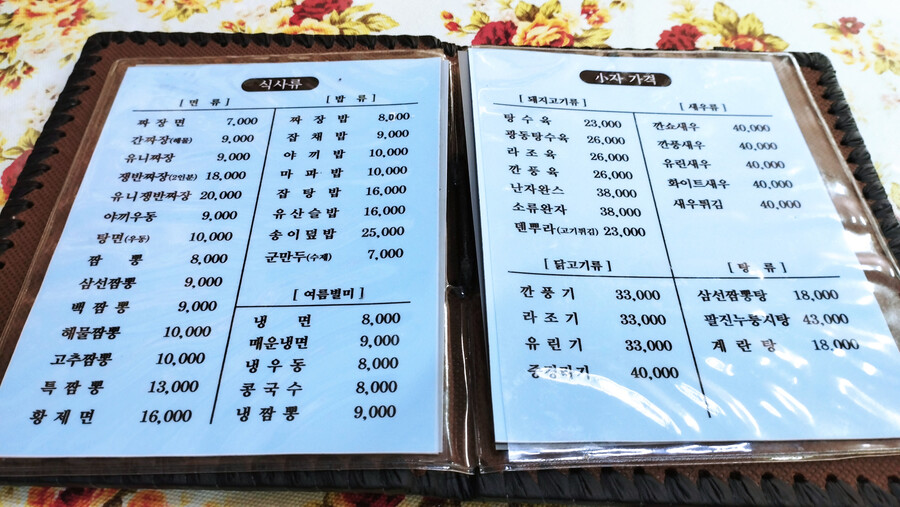 식사류
[ 면 류 ]
짜 장 면 7,000
간짜장(해물) 9,000
유니짜장 9,000
쟁반짜장(2인분) 18,000
유니쟁반짜장 20,000
야끼우동 9,000
탕면(우동) 10,000
짬 뽕 8,000
삼선짬뽕 9,000
백 짬 뽕 9,000
해물짬뽕 10,000
고추짬뽕 10,000
특 짬 뽕 13,000
황 제 면 16,000
[ 밥 류 ]
짜 장 밥 8,000
잡 채 밥 9,000
야 끼 밥 10,000
마 파 밥 10,000
잡 탕 밥 16,000
유 산 슬 밥 16,000
송 이 덮 밥 25,000
군만두(수제) 7,000
[ 여름별미 ]
냉 면 8,000
매운냉면 9,000
냉 우 동 8,000
콩 국 수 8,000
냉 짬 뽕 9,000
小자 가격
[ 돼지고기류 ]
탕 수 육 23,000
광동탕수육 26,000
라 조 육 26,000
깐 풍 육 26,000
난자완스 38,000
소류완자 38,000
덴뿌라(고기튀김) 23,000
[ 새우류 ]
깐쇼새우 40,000
깐풍새우 40,000
유린새우 40,000
화이트새우 40,000
새우튀김 40,000
[ 닭고기류 ]
깐 풍 기 33,000
라 조 기 33,000
유 린 기 33,000
40,000
[ 탕 류 ]
삼선짬뽕탕 18,000
팔진누룽지탕 43,000
계 란 탕 18,000